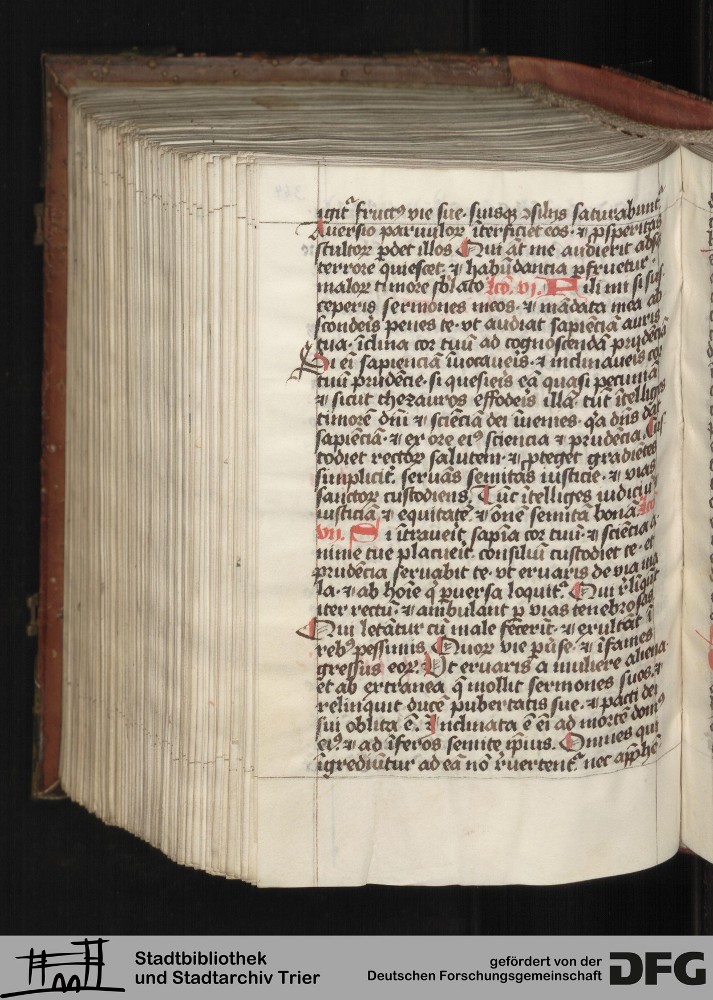 igit᷑ fructꝰ vie sue. suisqꝫ ꝯsilijs saturabunt᷑
Auersio paruulor̄ īterficiet eos. ⁊ ꝓsperitas
stultor̄ ꝑdet illos Qui āt me audierit absqꝫ
terrore quiescet. ⁊ habūdancia ꝑfruetur.
malor̄ timore sblato lco. vi. Fili mi si sus
ceperis sermones meos. ⁊ mādata mea ab
scondeīs penes te. vt audiat sapiēciā auris
tua. īclina cor tuū ad cognoscendā prudēciā
Si eī sapienciā īuocaueīs. ⁊ inclinaueīs cor
tuū prudēcie. si quesieīs eā quasi pecuniā
⁊ sicut thezauros effodeīs illā. tūc ītelliges
timorē dnī ⁊ sciēciā dei īuenies. q̄a dn̄s dat
sapiēciā. ⁊ ex ore eiꝰ sciencia ⁊ prudēcia. Cus
todiet rector̄ salutem. ⁊ ꝓteget gradiētes
simplicit᷑. seruās semitas iusticie. ⁊ vias
sanctor̄ custodiens. Tūc ītelliges iudiciū
iusticiā ⁊ equitatē. ⁊ om̄e semitā bonā. lco
vii. Si ītraueīt sapīa cor tuū. ⁊ sciēcia a
nime tue placueīt. consiliū custodiet te. et
prudēcia seruabit te. vt eruaris de via ma
la. ⁊ ab hoīe q̄ ꝑuersa loquit᷑. Qui r̄liquūt
iter rectū. ⁊ ambulant ꝑ vias tenebrosas
Qui letātur cū male fecerīt. ⁊ exultāt ī
rebꝰ pessimis. Quor̄ vie ꝑuīse. ⁊ īfames
gressus eor̄. Vt eruaris a muliere aliena.
et ab extranea q̄ mollit sermones suos. ⁊
relinquit ducē pubertatis sue. ⁊ pacti dei
sui oblita ē. Inclinata ē eī ad mortē domꝰ
eiꝰ. ⁊ ad īferos semite ip̄ius. Omnes qui
īgrediūtur ad eā nō r̄uertent᷑. nec app̄hē
Stadtbibliothek
und Stadtarchiv Trier
gefördert von der
Deutschen Forschungsgemeinschaft DFG